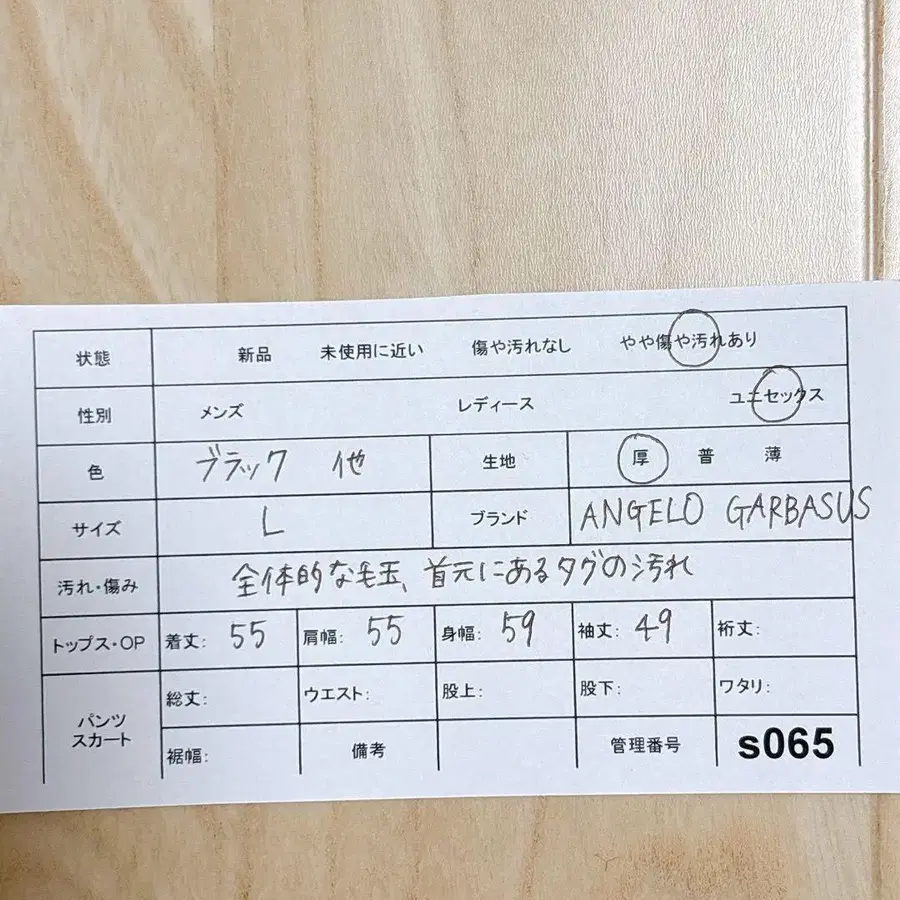 状態 新品 未使用に近い 傷や汚れなし やや傷や汚れあり
性別 メンズ レディース ユニセックス
色 ブラック 他 生地 厚 普 薄
サイズ L ブランド ANGELO GARBASUS
汚れ・傷み 全体的な毛玉、首元にあるタグの汚れ
トップス・OP 着丈: 55 肩幅: 55 身幅: 59 袖丈: 49 裄丈:
パンツ スカート 総丈: ウエスト: 股上: 股下: ワタリ:
裾幅: 備考 管理番号 s065